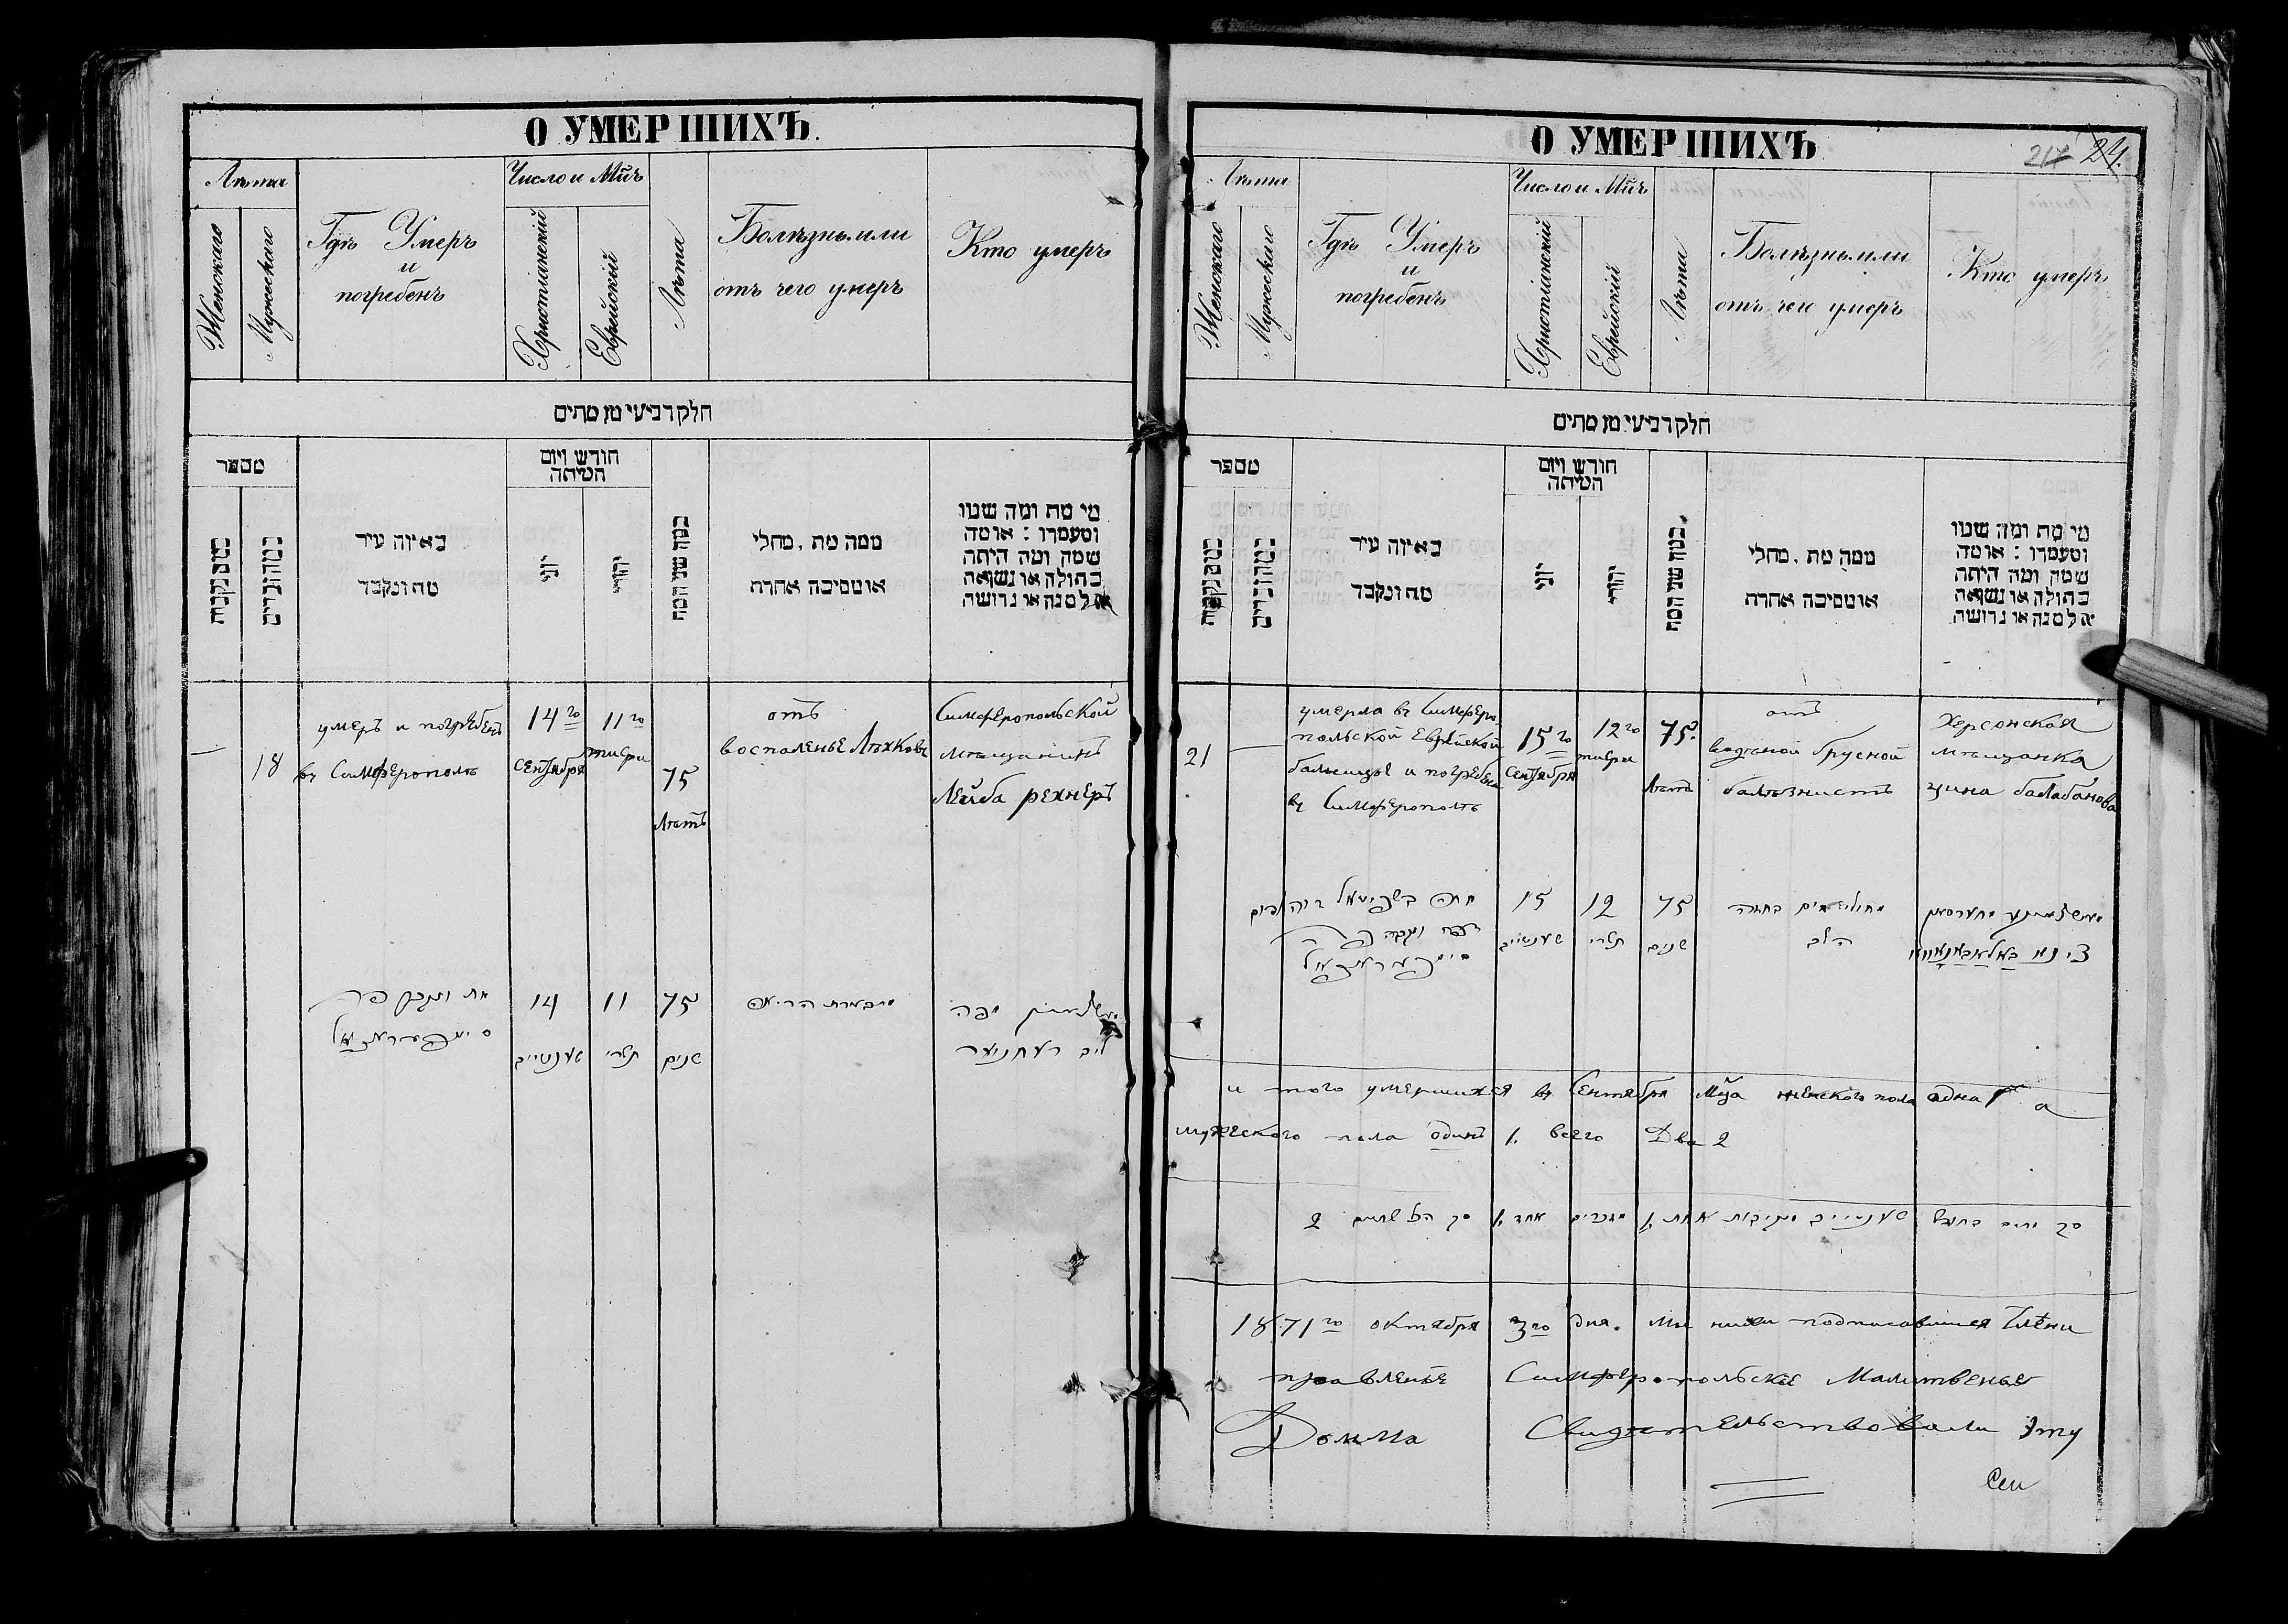 О УМЕРШИХЪ.
Лѣта
Женскаго
Мужескаго
Гдѣ Умеръ
и
погребенъ
Число и Мц̃ъ
Христіанскій
Еврейскій
Лѣта
Болѣзнь или
отъ чего умеръ
Кто умеръ
חלק רביעי מן מתים
מספר
מספר נקבות
מספר זכרים
באיזה עיר
מת ונקבר
חודש ויום
המיתה
יוני
יהודי
כמה שני המת
ממה מת . מחלי
או מסיבה אחרת
מי מת ומה שמו
ומעמדו : או מה
שמה ומה היתה
בתולה או נשואה
אלמנה או גרושה
—
18
умеръ и погрѣбенъ
въ Симферополѣ
14го
Сентября
11го
тишри
75
Лѣтъ
отъ
воспаленье Лѣхковъ
Симферопольской
мѣщанинъ
Лейба рехнеръ
מת ונקבר פה
סימפעראפאל
14
סענטייב
11
תשרי
75
שנים
ליב רעחניער
О УМЕРШИХЪ
217 24.
Лѣта
Женскаго
Мужескаго
Гдѣ Умеръ
и
погребенъ
Число и Мц̃ъ
Христіанскій
Еврейскій
Лѣта
Болѣзнь или
отъ чего умеръ
Кто умеръ
חלק רביעי מן מתים
מספר
מספר נקבות
מספר זכרים
באיזה עיר
מת ונקבר
חודש ויום
המיתה
יוני
יהודי
כמה שני המת
ממה מת . מחלי
או מסיבה אחרת
מי מת ומה שמו
ומעמדו : או מה
שמה ומה היתה
בתולה או נשואה
אלמנה או גרושה
21
—
умерла въ Симферо
польской Еврейской
больницѣ и погребена
въ Симферополѣ
15го
Сентября
12го
тишри
75.
Лѣтъ
отъ
грусной
балѣзнистъ
Херсонская
мѣщанка
цина балабанова
סימפעראפאל
15
סענטייב
12
תשרי
75
שנים
הלב
צינא באלאבאנאווא
и того умершихся въ Сентября Мц̃а женскаго пола одна 1 а
мужескаго пола одинъ 1. всего Два 2
סך מתים בחודש סענטייב נקיבות אחת 1, זכרים אחד 1, סך הכל שתים 2
1871го октября 3го дня. Мы ниже подписавшися Члѣни
правленье Симферопольское Малитвенье
Домма Свидѣтельствовали эту
Сеи